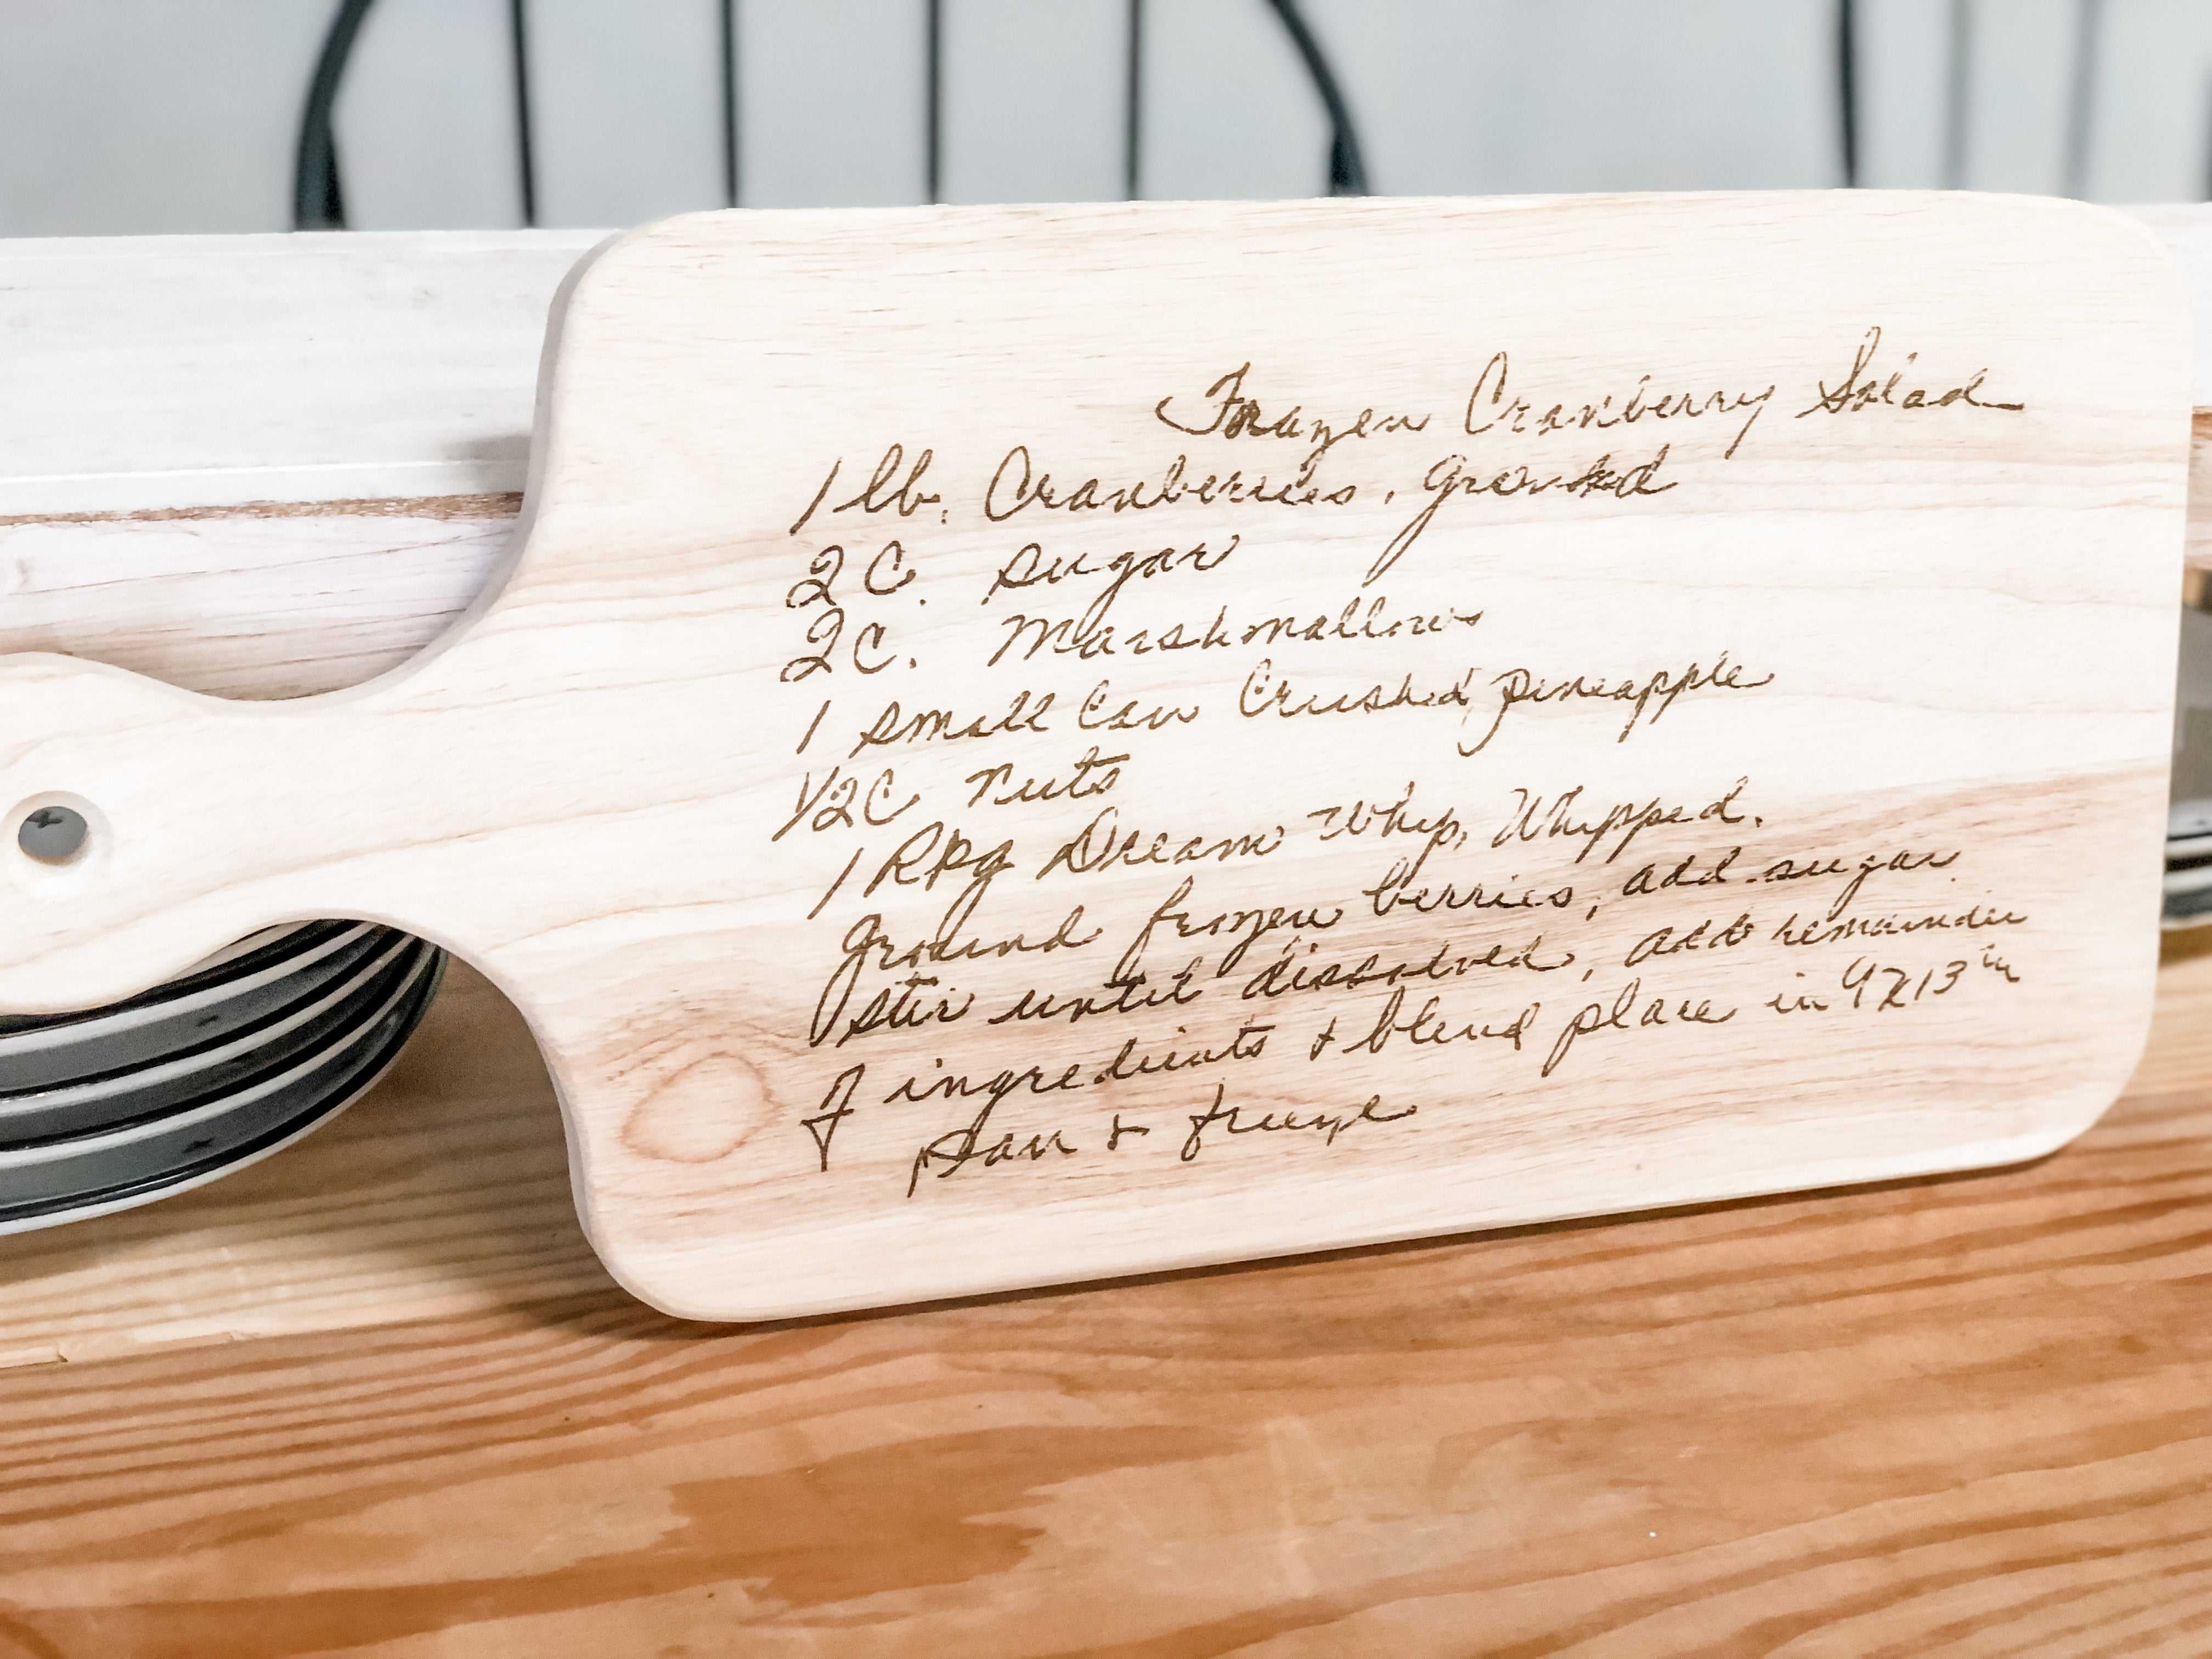 Frozen Cranberry Salad
1 lb. Cranberries, ground
2 C. sugar
2 C. Marshmallows
1 small can Crushed pineapple
1/2 C nuts
1 Pkg Dream Whip, Whipped.
Ground frozen berries, add sugar
stir until dissolved, add remainder
of ingredients & blend place in 9x13 in
pan & freeze